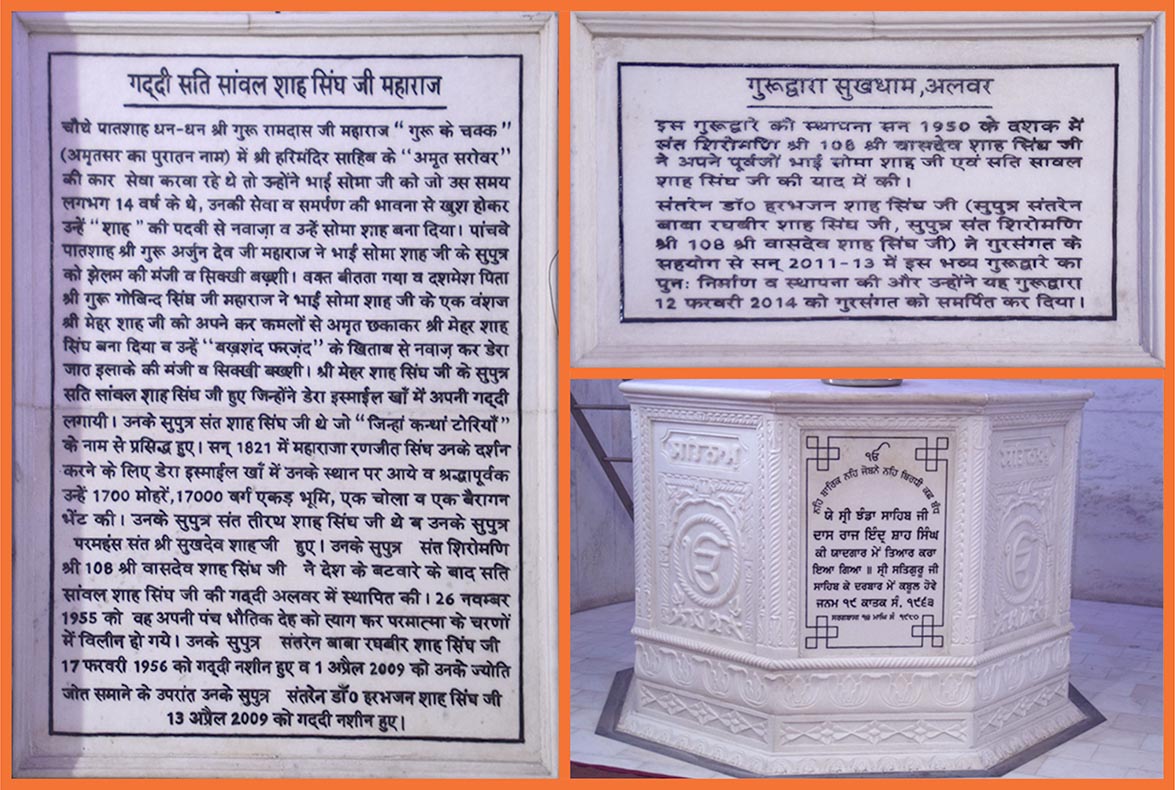 गद्दी सति सांवल शाह सिंघ जी महाराज
चौथे पातशाह धन-धन श्री गुरू रामदास जी महाराज “ गुरू के चक्क”
(अमृतसर का पुरातन नाम) में श्री हरिमंदिर साहिब के “अमृत सरोवर”
की कार सेवा करवा रहे थे तो उन्होंने भाई सोमा जी को जो उस समय
लगभग 14 वर्ष के थे, उनकी सेवा व समर्पण की भावना से खुश होकर
उन्हें “शाह” की पदवी से नवाज़ा व उन्हें सोमा शाह बना दिया। पांचवे
पातशाह श्री गुरू अर्जुन देव जी महाराज ने भाई सोमा शाह जी के सुपुत्र
को झेलम की मंजी व सिक्खी बख़्शी। वक्त बीतता गया व दशमेश पिता
श्री गुरू गोबिन्द सिंघ जी महाराज ने भाई सोमा शाह जी के एक वंशज
श्री मेहर शाह जी को अपने कर कमलों से अमृत छकाकर श्री मेहर शाह
सिंघ बना दिया व उन्हें “बख़्शंद फरज़ंद” के खिताब से नवाज़ कर डेरा
जात इलाके की मंजी व सिक्खी बख्शी। श्री मेहर शाह सिंघ जी के सुपुत्र
सति सांवल शाह सिंघ जी हुए जिन्होंने डेरा इस्माईल खाँ में अपनी गद्दी
लगायी। उनके सुपुत्र संत शाह सिंघ जी थे जो “जिन्हां कन्धां टोरियाँ”
के नाम से प्रसिद्ध हुए। सन् 1821 में महाराजा रणजीत सिंघ उनके दर्शन
करने के लिए डेरा इस्माईल खाँ में उनके स्थान पर आये व श्रद्धापूर्वक
उन्हें 1700 मोहरें,17000 वर्ग एकड़ भूमि, एक चोला व एक बैरागन
भेंट की। उनके सुपुत्र संत तीरथ शाह सिंघ जी थे ब उनके सुपुत्र
परमहंस संत श्री सुखदेव शाह जी हुए। उनके सुपुत्र संत शिरोमणि
श्री 108 श्री वासदेव शाह सिंघ जी ने देश के बटवारे के बाद सति
सांवल शाह सिंघ जी की गद्दी अलवर में स्थापित की। 26 नवम्बर
1955 को वह अपनी पंच भौतिक देह को त्याग कर परमात्मा के चरणों
में विलीन हो गये। उनके सुपुत्र संतरेन बाबा रघबीर शाह सिंघ जी
17 फरवरी 1956 को गद्दी नशीन हुए व 1 अप्रैल 2009 को उनके ज्योति
जोत समाने के उपरांत उनके सुपुत्र संतरेन डाॅ0 हरभजन शाह सिंघ जी
13 अप्रैल 2009 को गद्दी नशीन हुए।
गुरूद्वारा सुखधाम,अलवर
इस गुरूद्वारे की स्थापना सन 1950 के दशक में
संत शिरोमणि श्री 108 श्री वासदेव शाह सिंघ जी
ने अपने पूर्वजों भाई सोमा शाह जी एवं सति सावल
शाह सिंघ जी की याद में की।
संतरेन डाॅ0 हरभजन शाह सिंघ जी (सुपुत्र संतरेन
बाबा रघबीर शाह सिंघ जी, सुपुत्र संत शिरोमणि
श्री 108 श्री वासदेव शाह सिंघ जी) ने गुरसंगत के
सहयोग से सन् 2011-13 में इस भव्य गुरूद्वारे का
पुनः निर्माण व स्थापना की और उन्होंने यह गुरूद्वारा
12 फरवरी 2014 को गुरसंगत को समर्पित कर दिया।
ਸਤਿਨਾਮ
ੴ
ਨਹਿ ਬਾਰਿਕ ਨਹ ਜੋਬਨੈ ਨਹਿ ਬਿਰਧੀ ਕਛੁ ਬੰਧੁ
ਯੇ ਸ੍ਰੀ ਝੰਡਾ ਸਾਹਿਬ ਜੀ
ਦਾਸ ਰਾਜ ਇੰਦ੍ਰ ਸ਼ਾਹ ਸਿੰਘ
ਕੀ ਯਾਦਗਾਰ ਮੇਂ ਤਿਆਰ ਕਰਾ
ਇਆ ਗਿਆ ॥ ਸ੍ਰੀ ਸਤਿਗੁਰੂ ਜੀ
ਸਾਹਿਬ ਕੇ ਦਰਬਾਰ ਮੇਂ ਕਬੂਲ ਹੋਵੇ
ਜਨਮ ੧੯ ਕਾਤਕ ਸੰ. ੧੯੬੩
ਸਰਗਵਾਸ ੧੩ ਮਾਘਿ ਸੰ ੧੯੮੦
ਸਤਿਨਾਮ
ੴ
ੴ